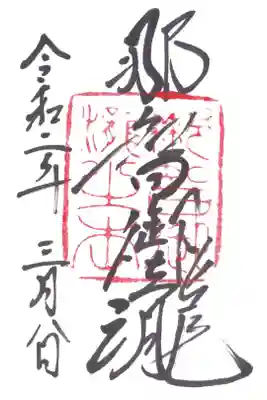 那智御瀧
令和二年 三月 日